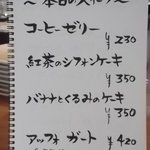 ～本日の
コーヒーゼリー
¥230
紅茶のシフォンケーキ
¥350
バナナとくるみのケーキ
¥350
アッフォガート
¥420